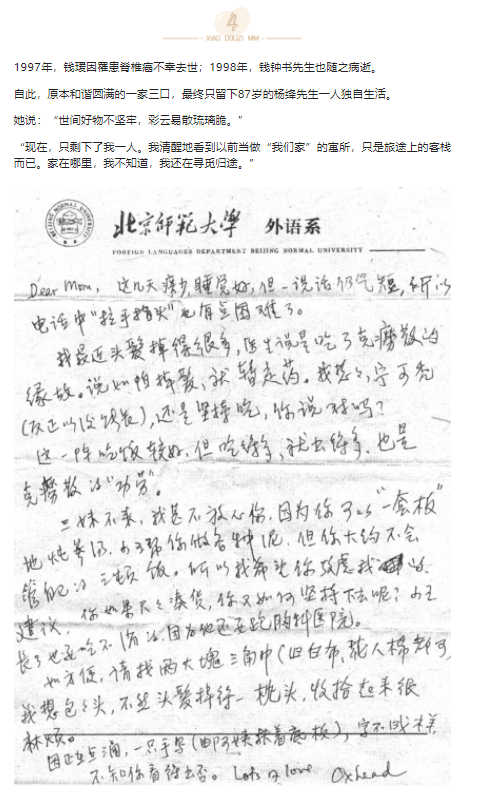 4
XIAO DOUZI MM
1997年，钱瑗因罹患脊椎癌不幸去世；1998年，钱钟书先生也随之病逝。
自此，原本和谐圆满的一家三口，最终只留下87岁的杨绛先生一人独自生活。
她说：“世间好物不坚牢，彩云易散琉璃脆。”
“现在，只剩下了我一人。我清醒地看到以前当做“我们家”的寓所，只是旅途上的客栈
而已。家在哪里，我不知道，我还在寻觅归途。”
北京师范大学 外语系
FOREIGN LANGUAGES DEPARTMENT BEIJING NORMAL UNIVERSITY
Dear Mom, 这几天痰少，睡觉好，但一说话仍气短，所以
电话中“拉手指头”也有点困难了。
我最近头髮掉得很多，医生说是吃了克癆散的
缘故。说如怕掉髮，就暂走药。我想了，宁可秃
(反正以后)，还是坚持吃，你说对吗？
这一阵吃饭较好，但吃得多，就出得多，也是
克癆散的“功劳”。
三妹不来，我甚不放心你，因为你可以“一套板”
地炖，小王帮你做各种泥，但你大约不会
管自己的三顿饭。所以我希望你考虑我的
建议，你如果天天凑货，你又如何坚持下去呢？小王
长了也是吃不消的，因为他还要跑胸科医院。
如方便，请找两大块三角巾(旧白布，旧人棉都可)
我想包包头，不然头髮掉得一枕头，收拾起来很
麻烦。
因正生点滴，一只手写(由阿姨抹着底板)，字不成样
不知你看得出否。Lots of love Oxhead